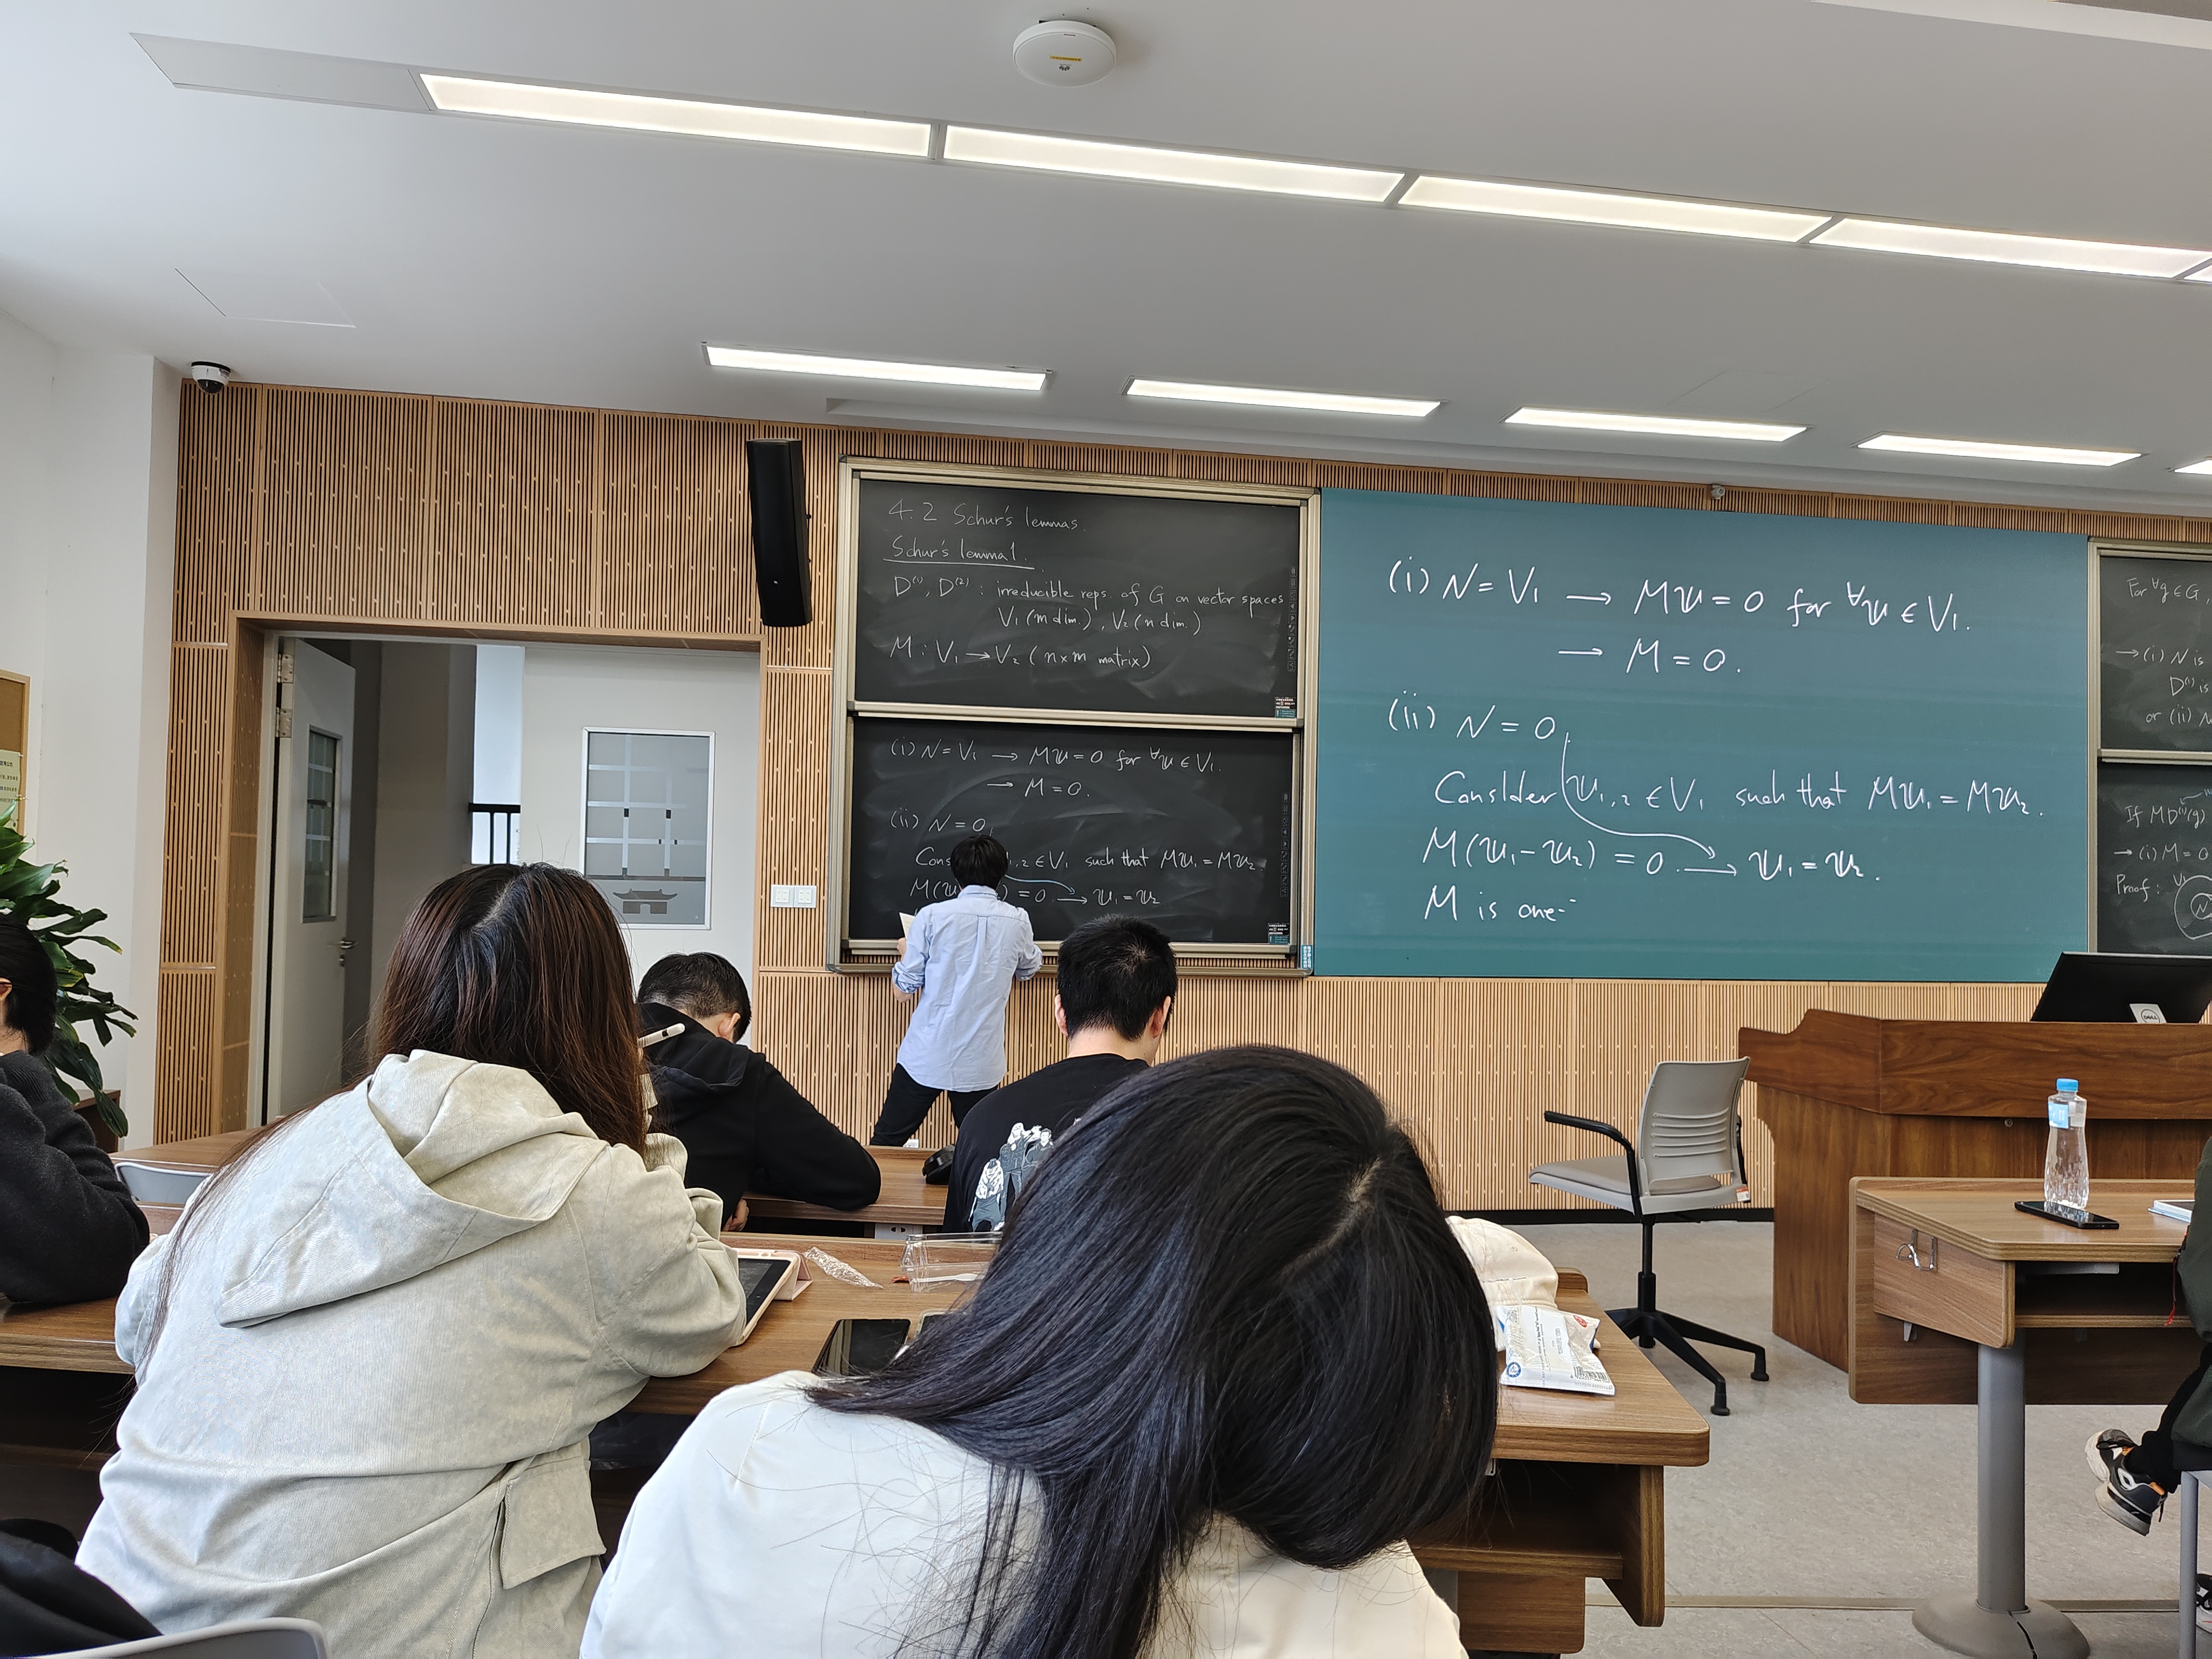 4.2 Schur's lemmas.
Schur's lemma 1.
D⁽¹⁾, D⁽²⁾ : irreducible reps. of G on vector spaces
V₁ (m dim.), V₂ (n dim.)
M : V₁ → V₂ (n×m matrix)
(i) N = V₁ → M𝓊 = 0 for ∀𝓊 ∈ V₁.
→ M = 0.
(ii) N = 0
Cons ₁,₂ ∈ V₁ such that M𝓊₁ = M𝓊₂.
M(𝓊 ) = 0 → 𝓊₁ = 𝓊₂
(i) N = V₁ → M𝓊 = 0 for ∀𝓊 ∈ V₁.
→ M = 0.
(ii) N = 0
Consider 𝓊₁,₂ ∈ V₁ such that M𝓊₁ = M𝓊₂.
M(𝓊₁ - 𝓊₂) = 0. → 𝓊₁ = 𝓊₂.
M is one-
For ∀g ∈ G,
→ (i) N is
D⁽¹⁾ is
or (ii) N
If MD⁽¹⁾(g)
→ (i) M = 0
Proof : V₁
N
DELL